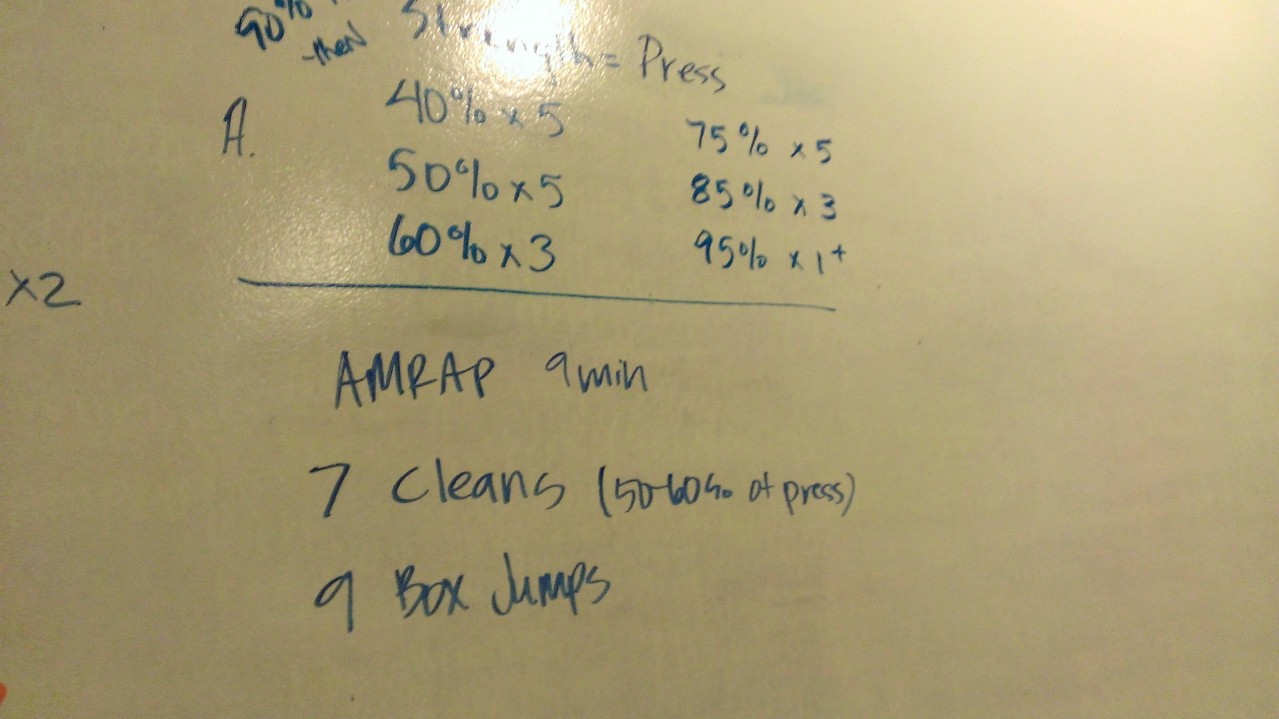 90%
-then
Strength = Press
A.
40% x 5
50% x 5
60% x 3
75% x 5
85% x 3
95% x 1+
x2
AMRAP 9 min
7 Cleans (50-60% of press)
9 Box Jumps